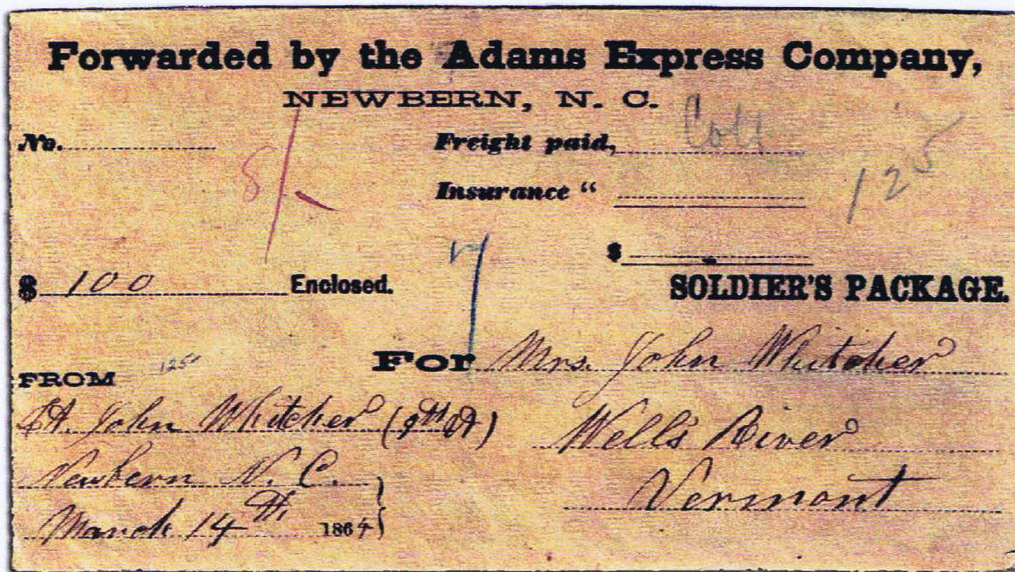 Forwarded by the Adams Express Company,
NEWBERN, N. C.
No.
Freight paid,
Insurance "
8/
125
7
$
$ 100 Enclosed.
SOLDIER'S PACKAGE.
125
For Mrs. John Whitcher
Wells River
Vermont
FROM
Lt. John Whitcher (9th Vt)
Newbern N. C.
March 14th 1864